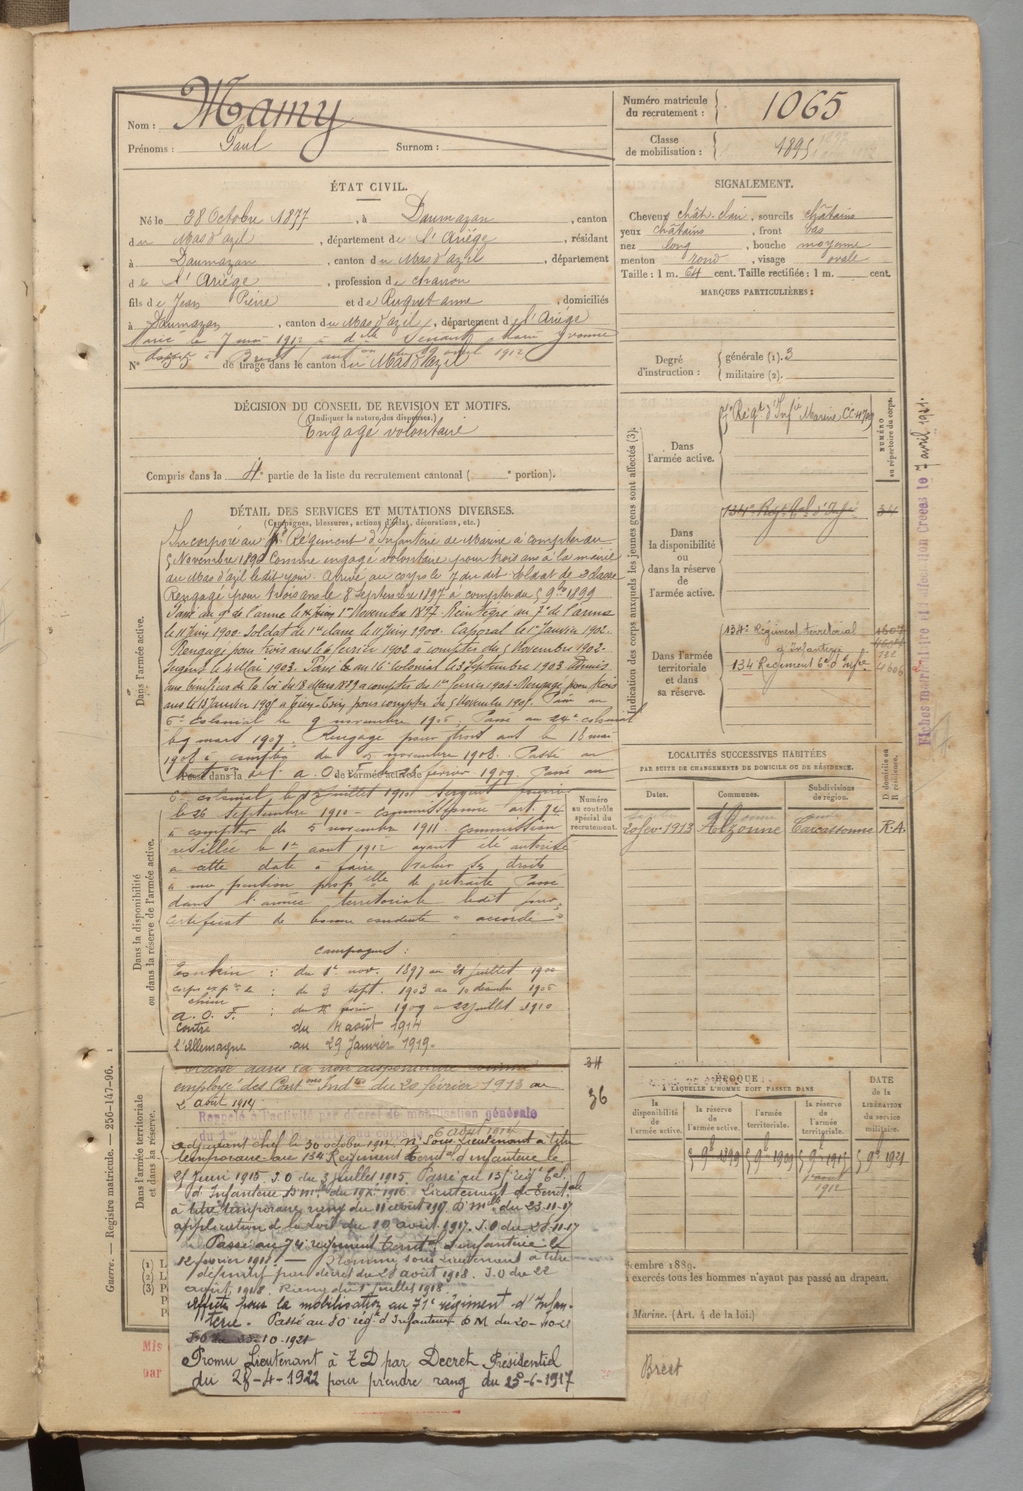 Nom : Mamy
Prénoms : Paul Surnom :
Numéro matricule du recrutement : 1065
Classe de mobilisation : 1895
ÉTAT CIVIL.
Né le 28 Octobre 1877, à Daumazan, canton
du Mas d'azil, département de l'Ariège, résidant
à Daumazan, canton du Mas d'azil, département
de l'Ariège, profession de charron
fils de Jean Pierre et de Ruquet anne, domiciliés
à Daumazan, canton du Mas d'azil, département de l'Ariège
Marié le 7 mai 1912 à dlle
N° de tirage dans le canton du Mas d'azil
SIGNALEMENT.
Cheveux chât. clair, sourcils châtains
yeux châtains, front bas
nez long, bouche moyenne
menton rond, visage ovale
Taille : 1 m. 64 cent. Taille rectifiée : 1 m. cent.
MARQUES PARTICULIÈRES :
Degré d'instruction : générale (1). 3
militaire (2).
DÉCISION DU CONSEIL DE REVISION ET MOTIFS.
(Indiquer la nature des dispenses.)
Engagé volontaire
Compris dans la 4e partie de la liste du recrutement cantonal ( e portion).
DÉTAIL DES SERVICES ET MUTATIONS DIVERSES.
(Campagnes, blessures, actions d'éclat, décorations, etc.)
Dans l'armée active.
Incorporé au Régiment d'Infanterie de Marine à compter du
5 Novembre 189 Comme engagé volontaire pour trois ans à la mairie
du Mas d'azil le dit jour. Arrivé au corps le 7 du dit Soldat de 2e classe
Rengagé pour 3 ans le 8 Septembre 1897 à compter du 5 9bre 1899
Passé au 9e de l'arme le 1er Novembre 1897 Réintégré au 7e de l'arme
le 11 Juin 1900. Soldat de 1re classe le 11 Juin 1900. Caporal le 1er Janvier 1902.
Rengagé pour trois ans le 6 février 1902 à compter du 5 Novembre 1902.
Sergent le 4 Mai 1903. Passé au 16e Colonial le 3 Septembre 1903 Admis
aux bénéfices de la loi du 18 Mars 1889 à compter du 1er février 1904. Rengagé pour trois
ans le 15 Janvier 1905 à pour compter du 5 Novembre 1905. Passé au
6e Colonial le 9 novembre 1906. Passé au 24e colonial
le 9 mars 1907. Rengagé pour trois ans le 18 mai
1908 à compter du 5 novembre 1908. Passé au
février 1909. Passé au
6e colonial le juillet 1910 Sergent fourrier
le 26 septembre 1910 - Commissionné art.
à compter du 5 novembre 1911 - Commission
résiliée le 1er aout 1912 ayant été autorisé
à cette date à faire valoir ses droits
à une pension propelle de retraite Passé
dans l'armée territoriale ledit jour.
certificat de bonne conduite " accordé "
Dans la disponibilité ou dans la réserve de l'armée active.
Numéro au contrôle spécial du recrutement.
Campagnes :
Tonkin : du 1er nov. 1897 au 21 juillet 1900
corps exp. de chine : du 3 sept. 1903 au 10 décembre 1905
A. O. F. : du février 1909 au 22 juillet 1910
Contre l'Allemagne du 4 août 1914
au 29 Janvier 1919.
Dans l'armée territoriale et dans sa réserve.
Classé dans la non disponibilité comme
employé des Contons Indtes du 20 février 1913 au
2 août 1914.
34
36
Rappelé à l'activité par décret de mobilisation générale
du 1er 6 aout 1914
adjudant chef le 30 octobre 1914. Né Sous Lieutenant à titre
temporaire au 134 Régiment Territ d'infanterie le
21 juin 1915. J.O du 3 juillet 1915. Passé au 131 régt Tal
d'Infanterie D Mle du 19-2-1916. Lieutenant de Territale
à titre temporaire rang du 11 août 1917 D Mlle du 23-11-17
application de la loi du 10 août 1917. J.O du 28-11-17
Passé au 74e régiment Territal d'infanterie le
12 février 1918 — Nommé sous Lieutenant à titre
définitif par décret du 20 août 1918. J.O du 22
août 1918. Rang du 1er juillet 1918.
Affecté pour la mobilisation au 71e régiment d'Infan-
terie. Passé au 80 régt d'Infanterie D M du 20-10-21
J.O du 23-10-1921
Promu Lieutenant à T D par Décret Présidentiel
du 28-4-1922 pour prendre rang du 25-6-1917
Indication des corps auxquels les jeunes gens sont affectés (3).
NUMÉRO au répertoire du corps.
Dans l'armée active.
7e Régt d'Infie Marine CC 4709
Dans la disponibilité ou dans la réserve de l'armée active.
134e Régt Tal d'Infie 34
Dans l'armée territoriale et dans sa réserve.
134e Régiment territorial d'infanterie
134 Régiment Tal d'Infie
Fiches matricule et de mobilisation créées le 7 avril 1921.
LOCALITÉS SUCCESSIVES HABITÉES
PAR SUITE DE CHANGEMENTS DE DOMICILE OU DE RÉSIDENCE.
Dates. Communes. Subdivisions de région. D. domicile ou R. résidence.
20 fév 1913 Alzonne Carcassonne R.A.
ÉPOQUE
À LAQUELLE L'HOMME DOIT PASSER DANS
la disponibilité de l'armée active.
la réserve de l'armée active.
l'armée territoriale.
la réserve de l'armée territoriale.
DATE de la LIBÉRATION du service militaire.
5 9b 1899 5 9b 1909 5 9b 1915 5 9b 1921
1er aout 1912
cembre 1889.
exercés tous les hommes n'ayant pas passé au drapeau.
Marine. (Art. 4 de la loi.)
Guerre. — Registre matricule. — 256-147-96. 1
(1) L
(2) L
(3) P
Mis
par
Brest